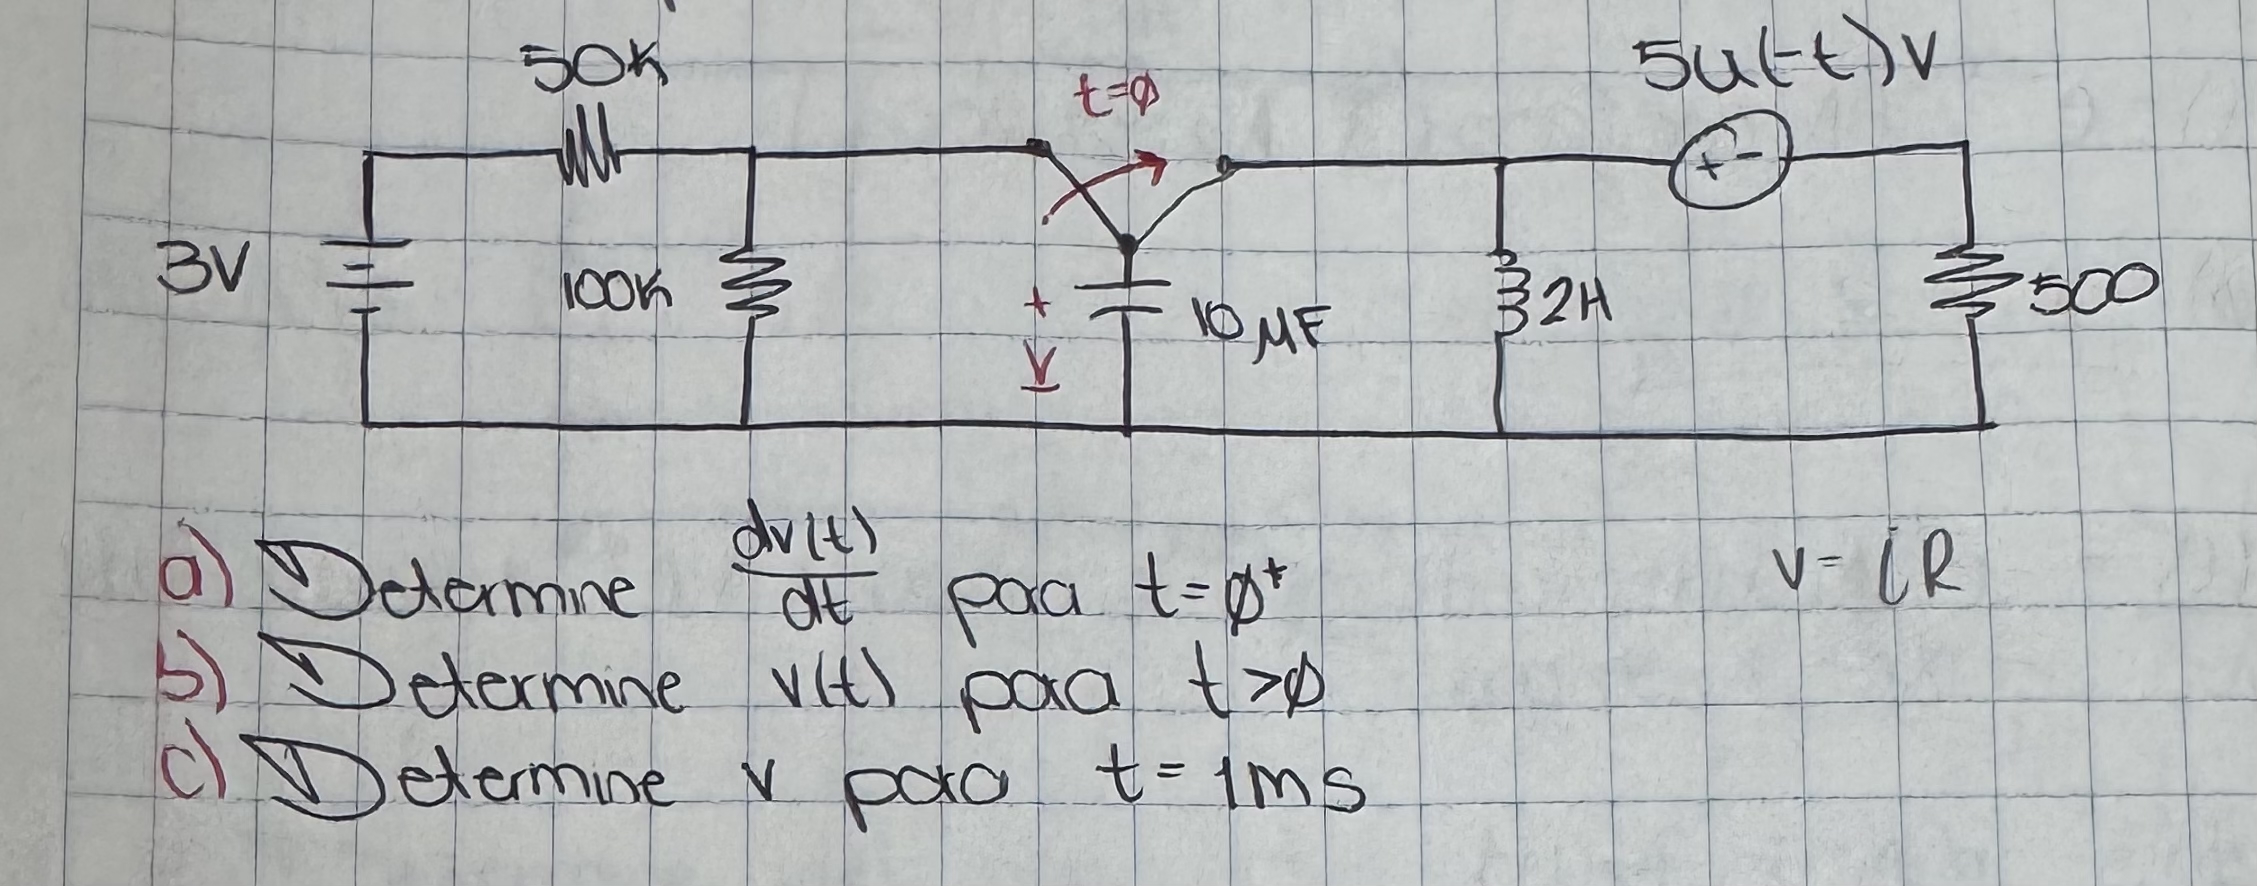 50K
t=ø
5u(-t)V
3V
100K
+
V
-
10 μF
2H
+ -
500
a) Determine dv(t)/dt para t=ø⁺
v=iR
b) Determine v(t) para t>ø
c) Determine v para t=1ms